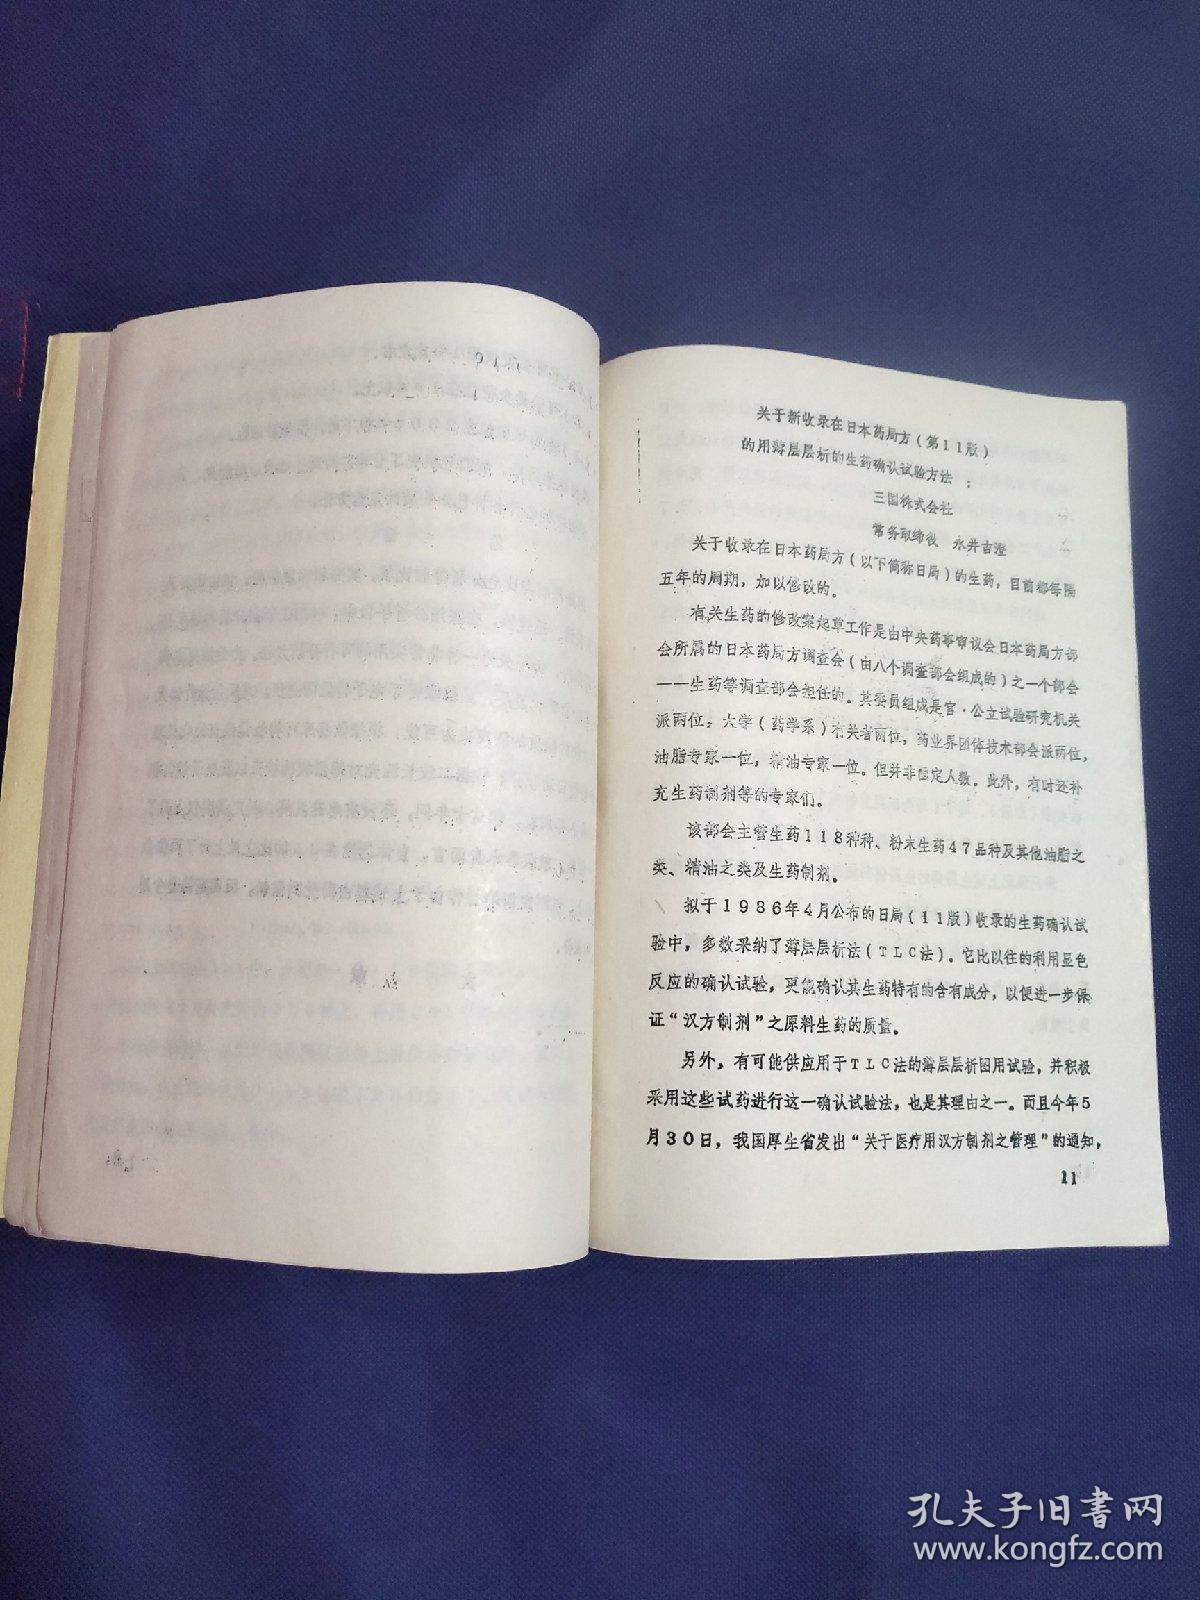 关于新收录在日本药局方(第11版)
的用薄层层析的生药确认试验方法:
三国株式会社
常务取缔役 永井吉澄
关于收录在日本药局方(以下简称日局)的生药,目前都每隔
五年的周期,加以修改的。
有关生药的修改案起草工作是由中央药事审议会日本药局方部
会所属的日本药局方调查会(由八个调查部会组成的)之一个部会
——生药等调查部会担任的。其委员组成是官·公立试验研究机关
派两位;大学(药学系)有关者两位,药业界团体技术部会派两位,
油脂专家一位,精油专家一位。但并非固定人数。此外,有时还补
充生药制剂等的专家们。
该部会主管生药118种种、粉末生药47品种及其他油脂之
类、精油之类及生药制剂。
拟于1986年4月公布的日局(11版)收录的生药确认试
验中,多数采纳了薄层层析法(TLC法)。它比以往的利用显色
反应的确认试验,更能确认其生药特有的含有成分,以便进一步保
证“汉方制剂”之原料生药的质量。
另外,有可能供应用于TLC法的薄层层析图用试验,并积极
采用这些试药进行这一确认试验法,也是其理由之一。而且今年5
月30日,我国厚生省发出“关于医疗用汉方制剂之管理”的通知,
11
孔夫子旧书网
www.kongfz.com